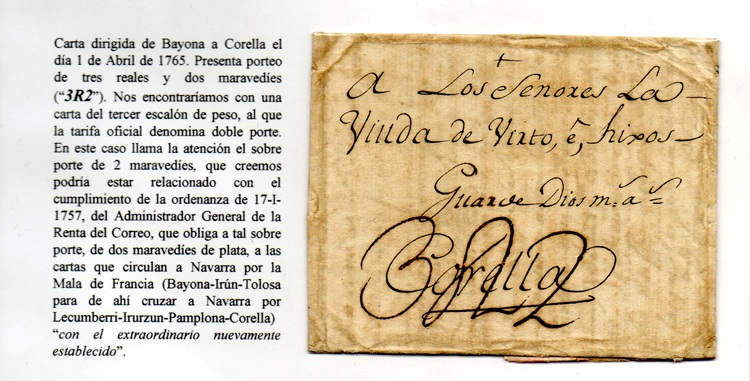 Carta dirigida de Bayona a Corella el
día 1 de Abril de 1765. Presenta porteo
de tres reales y dos maravedíes
("3R2"). Nos encontraríamos con una
carta del tercer escalón de peso, al que
la tarifa oficial denomina doble porte.
En este caso llama la atención el sobre
porte de 2 maravedíes, que creemos
podría estar relacionado con el
cumplimiento de la ordenanza de 17-I-
1757, del Administrador General de la
Renta del Correo, que obliga a tal sobre
porte, de dos maravedíes de plata, a las
cartas que circulan a Navarra por la
Mala de Francia (Bayona-Irún-Tolosa
para de ahí cruzar a Navarra por
Lecumberri-Irurzun-Pamplona-Corella)
"con el extraordinario nuevamente
establecido".
A Los Señores La
Viuda de Virto, é, hixos
Guarde Dios m.s a.s
Corella
3R2